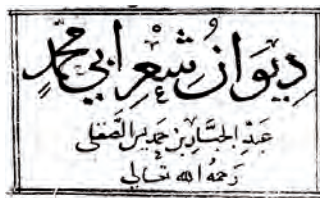 ديوانُ شعرِ ابي محمدٍ
عبد الجبار بن حمديس الصقلي
رحمهُ الله تعالى